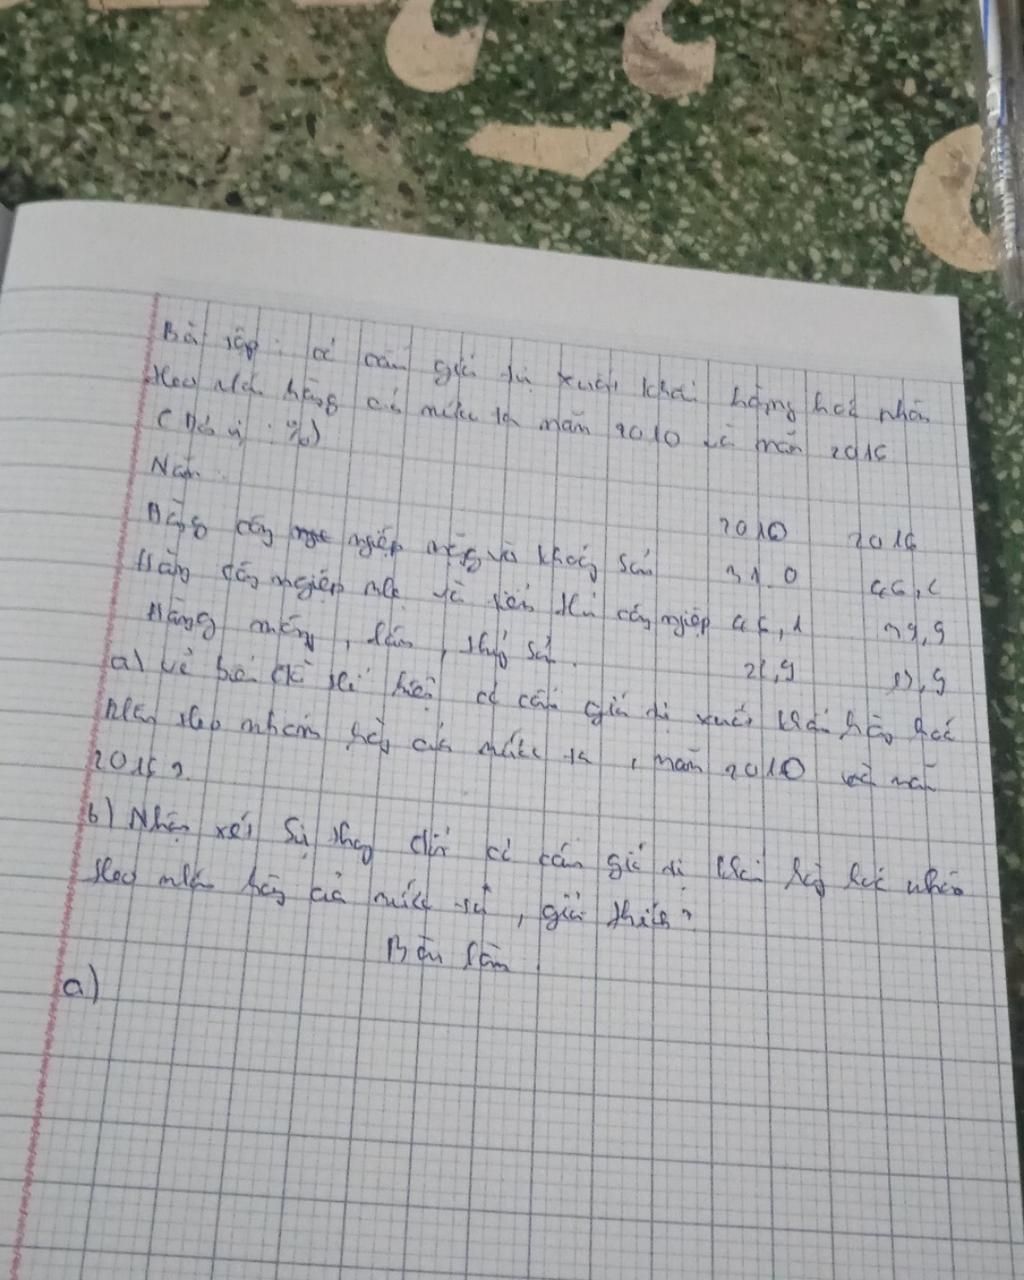 Bài tập: cơ cấu giá trị xuất khẩu hàng hoá phân
theo nhóm hàng của nước ta năm 2010 và năm 2016
(Đơn vị: %)
Năm 2010 2016
Hàng công nghiệp nặng và khoáng sản 31,0
Hàng công nghiệp nhẹ và tiểu thủ công nghiệp 46,1 39,9
Hàng nông, lâm, thuỷ sản
a) Vẽ biểu đồ thể hiện cơ cấu giá trị xuất khẩu hàng hoá
phân theo nhóm hàng của nước ta, năm 2010 và năm
2016?
b) Nhận xét sự thay đổi cơ cấu giá trị khẩu hàng hoá phân
theo nhóm hàng của nước ta, giải thích?
Bài làm
a)